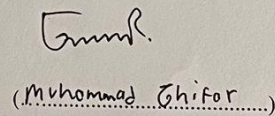 (Muhommad Ghifor)